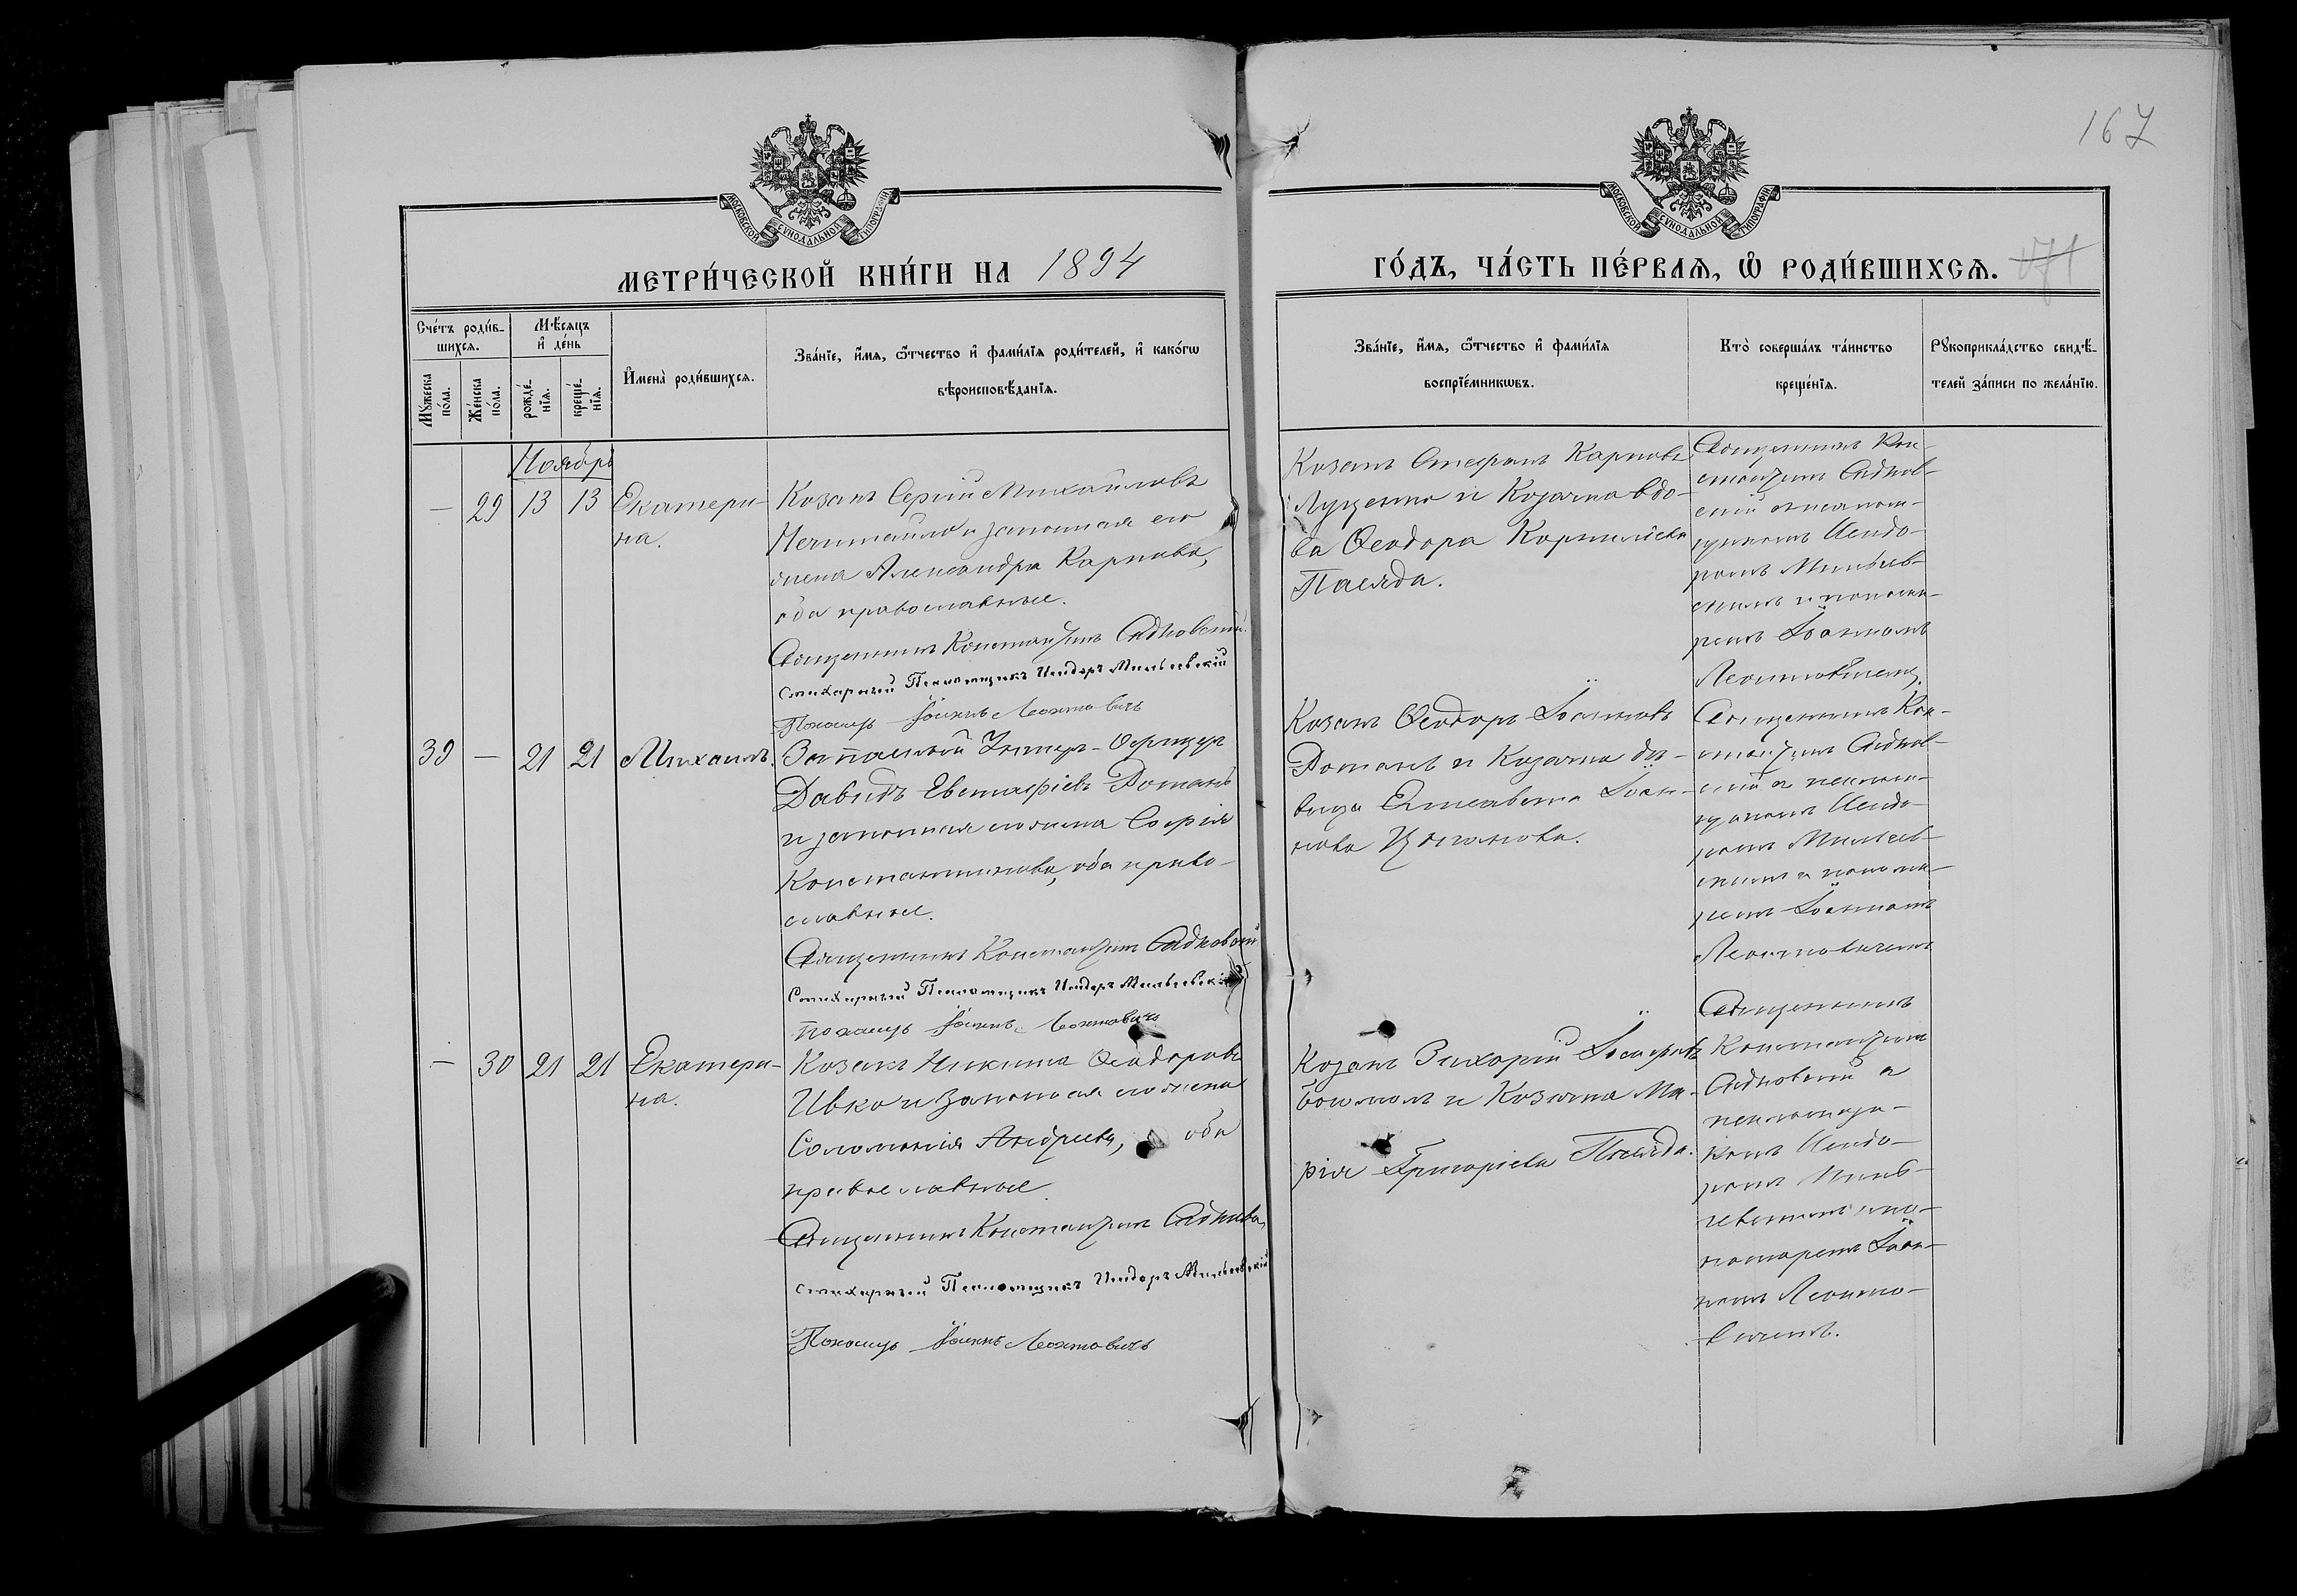 167
МОСКОВСКОЙ СѴНОДАЛЬНОЙ ТИПОГРАФІИ
МОСКОВСКОЙ СѴНОДАЛЬНОЙ ТИПОГРАФІИ
МЕТРИ́ЧЕСКОЙ КНИ́ГИ НА 1894
ГО́ДЪ, ЧА́СТЬ ПЕ́РВАЯ, Ѽ РОДИ́ВШИХСЯ.
Сче́тъ роди́в-
шихсѧ.
Мꙋ́жеска по́ла.
Же́нска по́ла.
Мѣ́сяцъ
и҆ де́нь
рожде́-
нїѧ.
креще́-
нїѧ.
И҆мена̀ роди́вшихсѧ.
Зва́нїе, и҆́мѧ, ѻ҆́тчество и҆ фами́лїѧ роди́телей, и҆ како́гѡ
вѣроисповѣ́данїѧ.
Зва́нїе, и҆́мѧ, ѻ҆́тчество и҆ фами́лїѧ
воспрїе́мникѡвъ.
Кто̀ соверша́лъ та́инство
креще́нїѧ.
Рꙋкоприкла́дство свидѣ́-
телей за́писи по жела́нїю.
Ноябрь
— 29 13 13 Екатери-
на.
Козакъ Сергій Михайловъ
Нечитайло и законная его
жена Александра Карпова,
оба православные.
Священникъ Константинъ Садковскій
Стихарный Псаломщикъ Исидоръ Мильевскій
Пономарь Іоаннъ Леонтовичъ
Козакъ Стефанъ Карповъ
Луценко и Козачка вдо-
ва Ѳеодора Корнилієва
Пасяда.
Священникъ Кон-
стантинъ Садков-
скій съ псалом-
щикомъ Исидо-
ромъ Мильев-
скимъ и понома-
ремъ Іоанномъ
Леонтовичемъ.
39 — 21 21 Михаилъ.
Запасный Унтеръ-Офицеръ
Давидъ Евстафіевъ Ротань
и законная его жена Софія
Константинова, оба право-
славные.
Священникъ Константинъ Садковскій
Стихарный Псаломщикъ Исидоръ Мильевскій
Пономарь Іоаннъ Леонтовичъ
Козакъ Ѳеодоръ Іоанновъ
Ротань и Козачка дѣ-
вица Елисавета Іоан-
нова Цыганова.
Священникъ Кон-
стантинъ Садков-
скій съ псалом-
щикомъ Исидо-
ромъ Мильев-
скимъ и понома-
ремъ Іоанномъ
Леонтовичемъ
— 30 21 21 Екатери-
на.
Козакъ Никита Ѳеодоровъ
Ивко и законная его жена
Соломонія Андреева, оба
православные.
Священникъ Константинъ Садковскій
Стихарный Псаломщикъ Исидоръ Мильевскій
Пономарь Іоаннъ Леонтовичъ
Козакъ Захарій Іосифовъ
и Козачка Ма-
рія Григоріева Пасяда.
Священникъ
Константинъ
Садковскій съ
псаломщи-
комъ Исидо-
ромъ Миль-
евскимъ и по-
номаремъ Іоан-
номъ Леонто-
вичемъ.